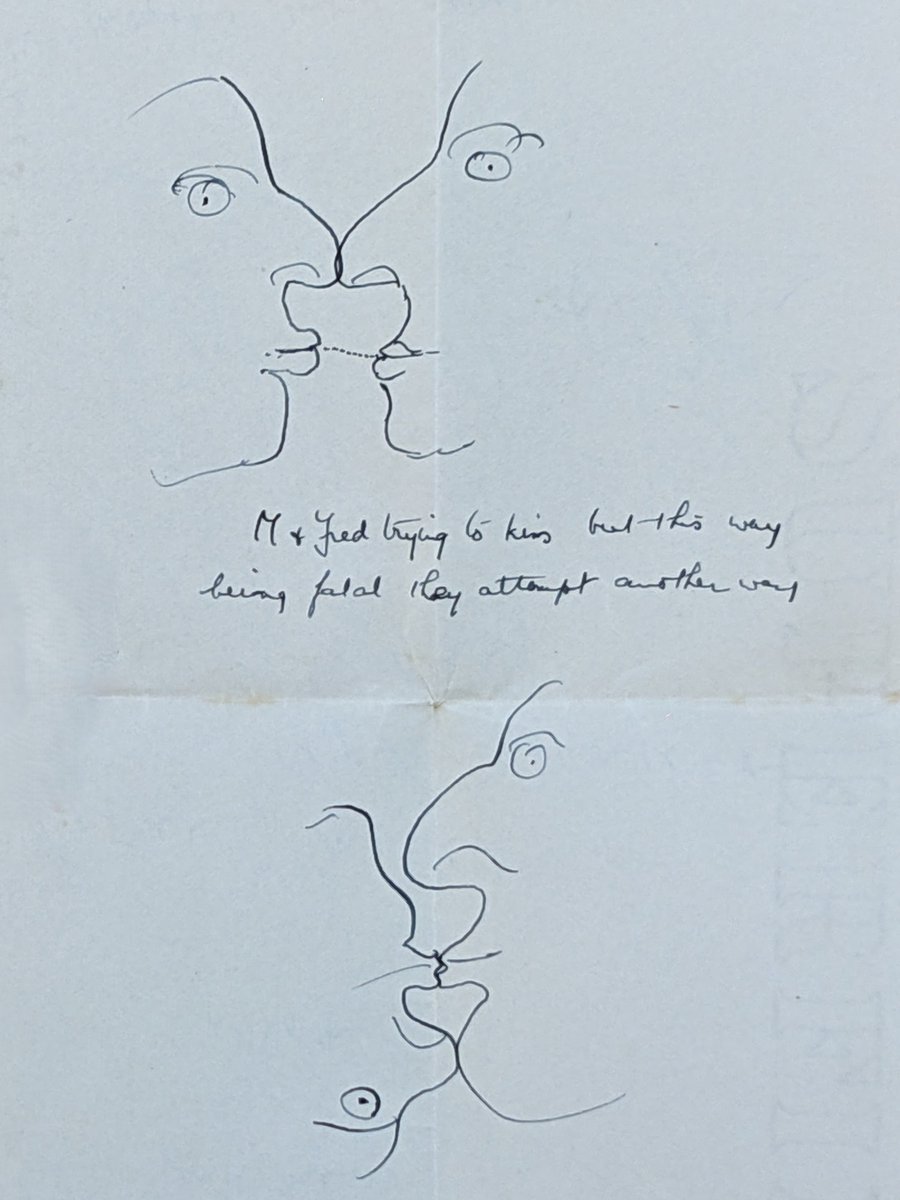 M & Fred trying to kiss but this way
being fatal they attempt another way